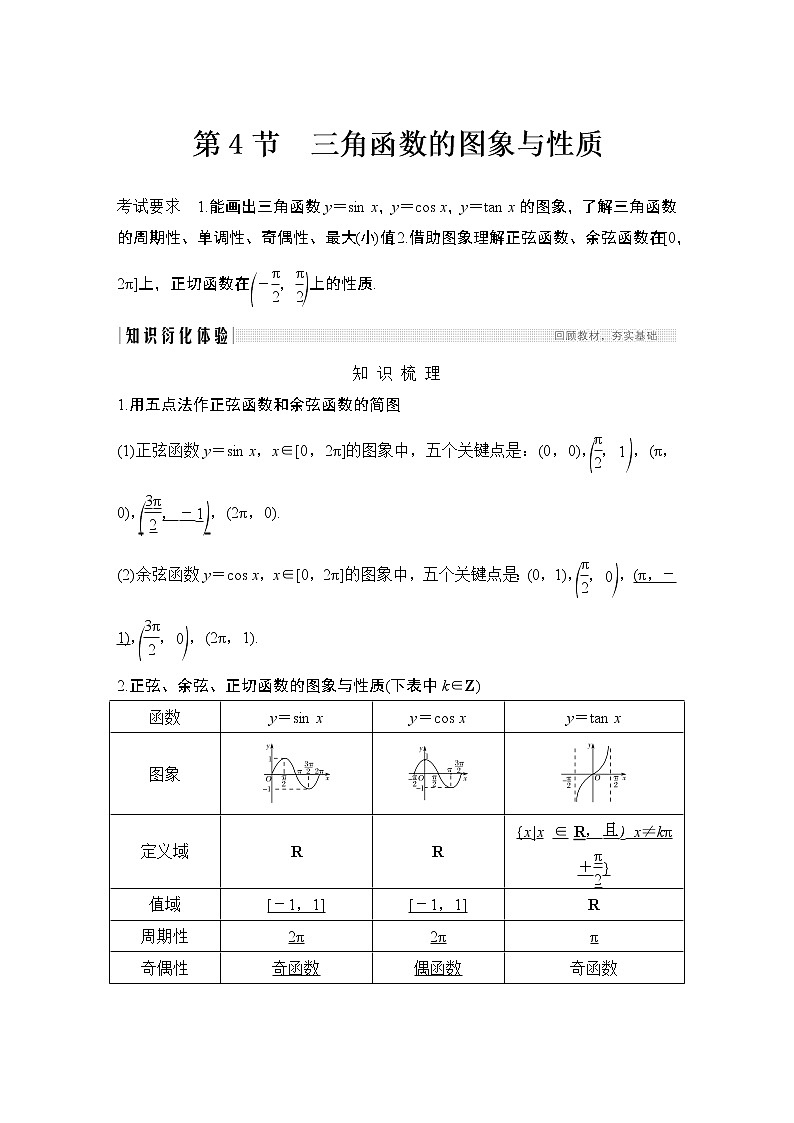 第4节　三角函数的图象与性质
考试要求　1.能画出三角函数 y＝sin x，y＝cos x，y＝tan x 的图象，了解三角函数
的周期性、单调性、奇偶性、最大(小)值.2.借助图象理解正弦函数、余弦函数在[0，
2π]上，正切函数在(－π/2，π/2)上的性质.
知识衍化体验　回顾教材，夯实基础
知 识 梳 理
1.用五点法作正弦函数和余弦函数的简图
(1)正弦函数 y＝sin x，x∈[0，2π]的图象中，五个关键点是：(0，0)，(π/2，1)，(π，
0)，(3π/2，－1)，(2π，0).
(2)余弦函数 y＝cos x，x∈[0，2π]的图象中，五个关键点是：(0，1)，(π/2，0)，(π，－
1)，(3π/2，0)，(2π，1).
2.正弦、余弦、正切函数的图象与性质(下表中 k∈Z)
函数　y＝sin x　y＝cos x　y＝tan x
图象　y 1 O π/2 π 3π/2 2π x －1　y 1 －π/2 O π/2 π 3π/2 x －1　y －π/2 O π/2 x
定义域　R　R　{x|x ∈ R，且) x≠kπ
＋π/2}
值域　[－1，1]　[－1，1]　R
周期性　2π　2π　π
奇偶性　奇函数　偶函数　奇函数